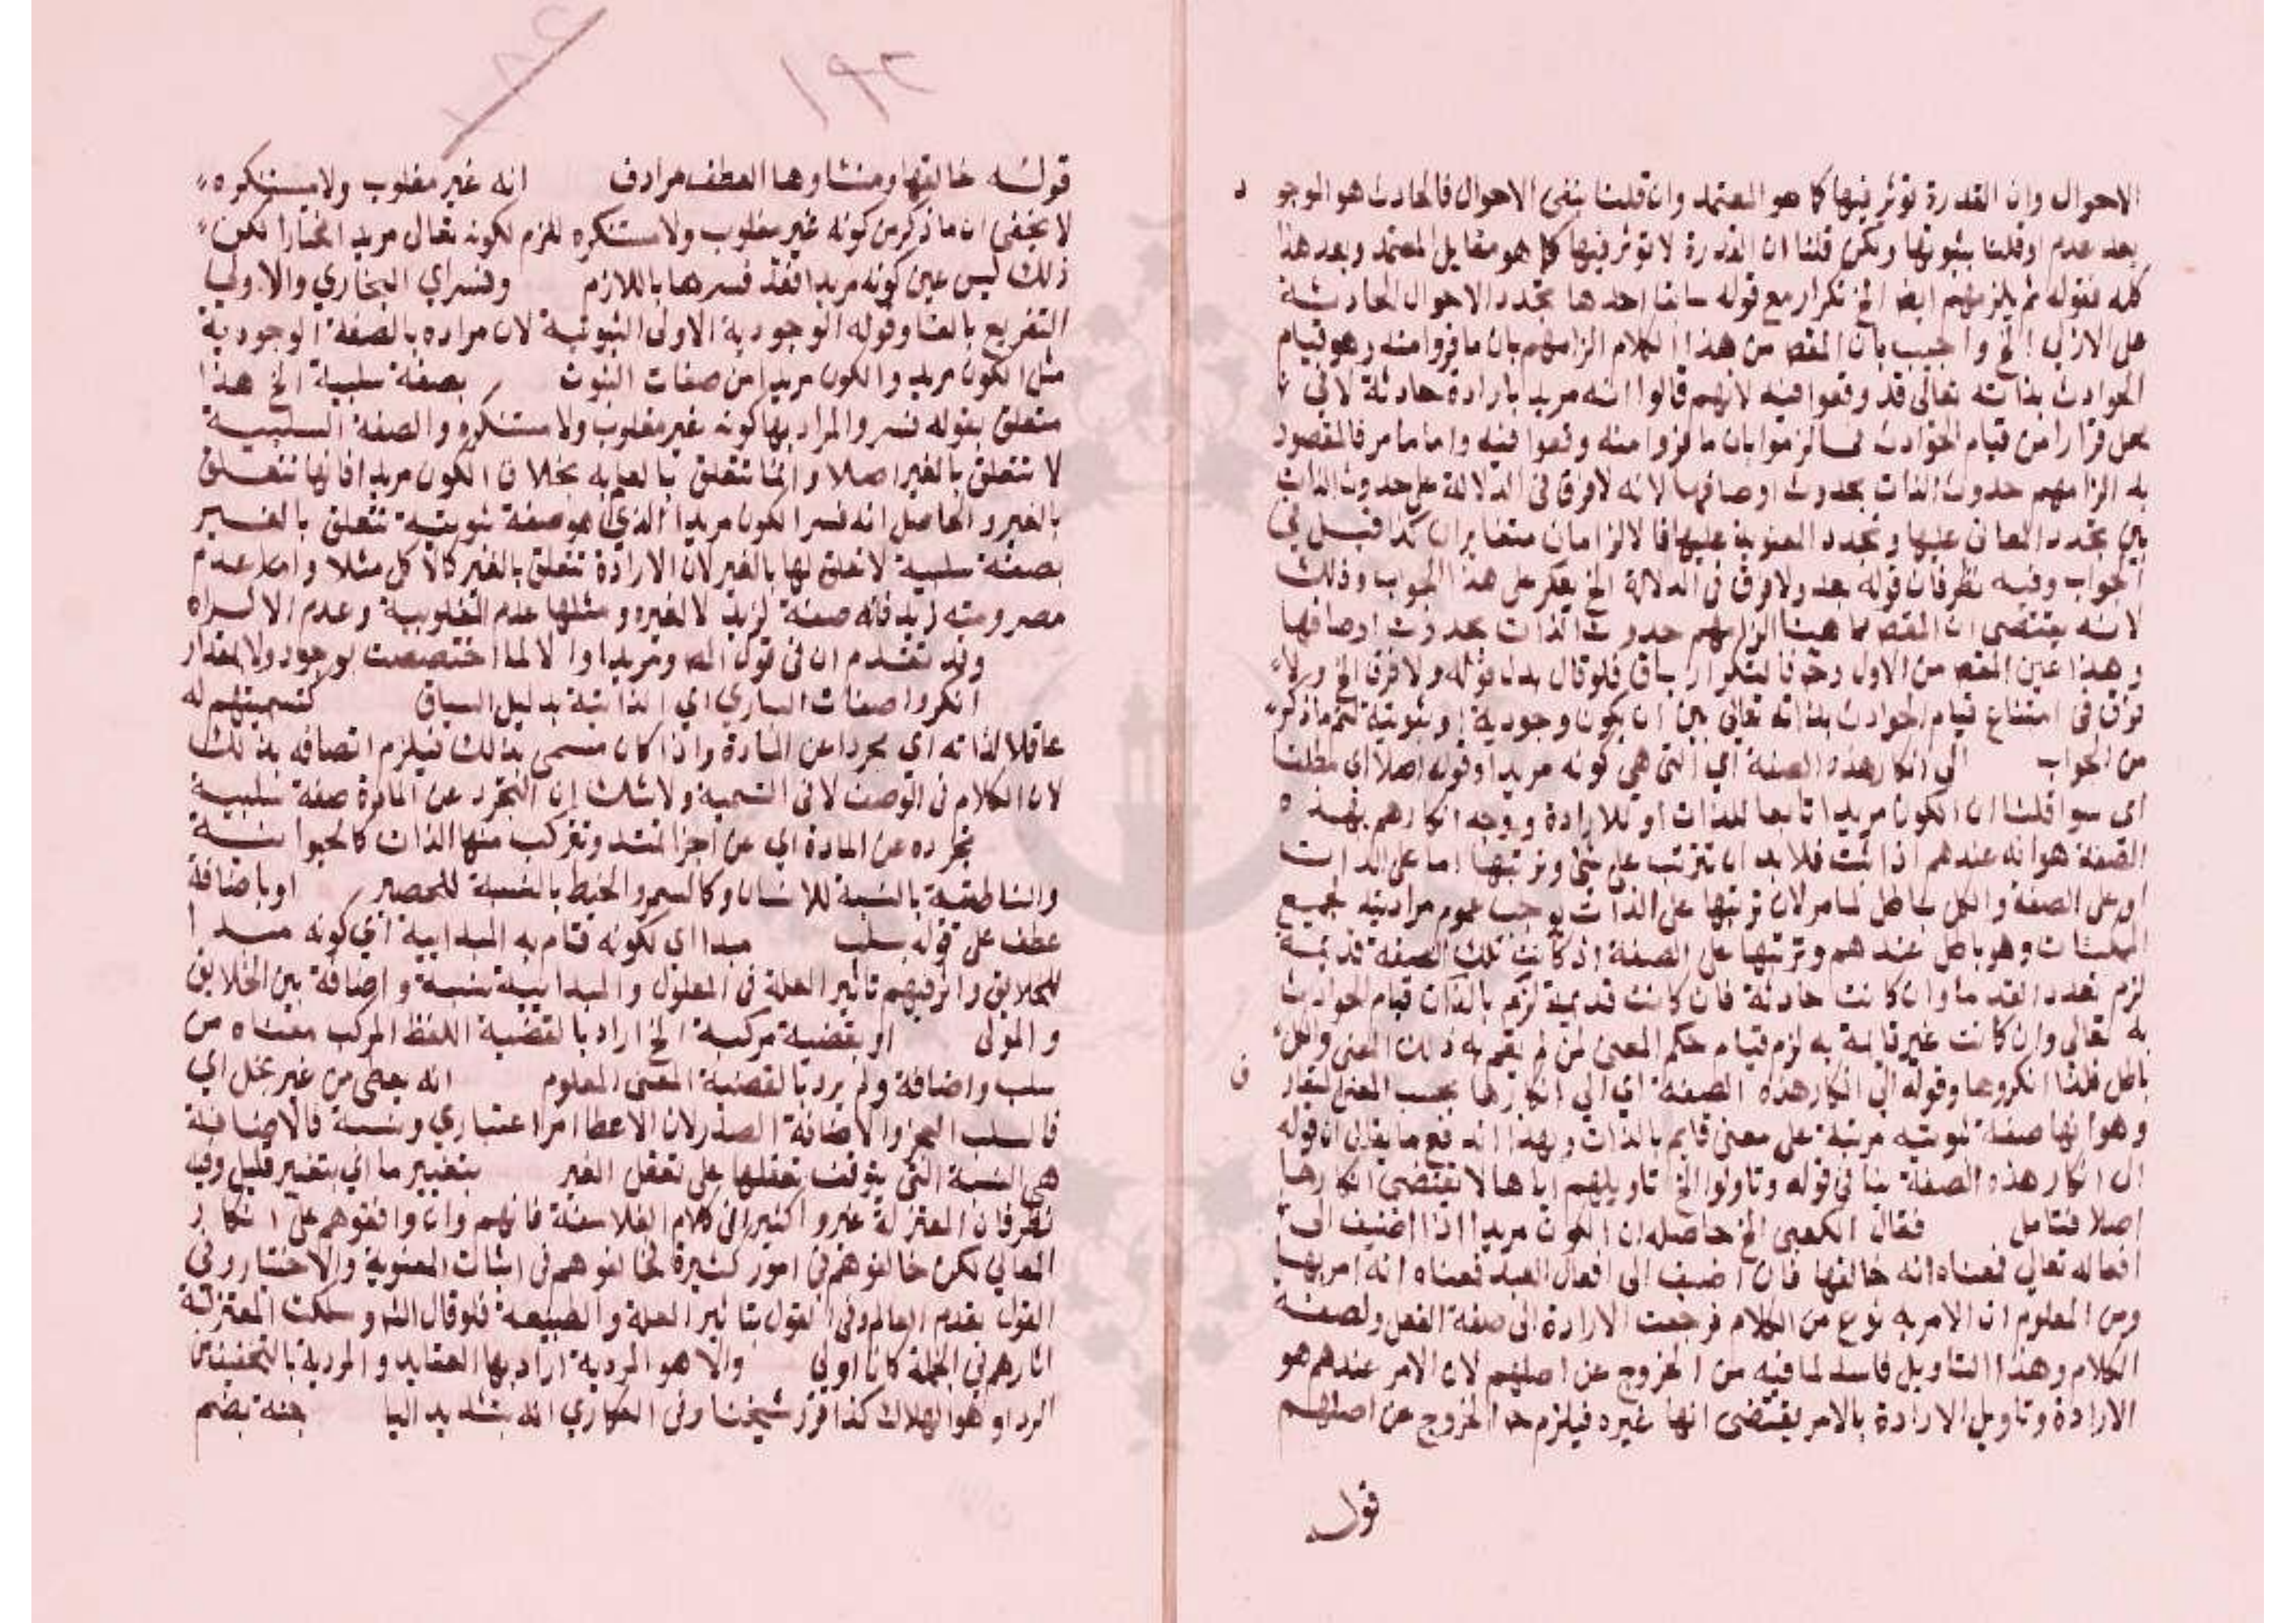 الاحوال وان القدرة توثر فيها كما هو المعتمد وان قلنا بنفي الاحوال فالحادث هو الموجود
بعد عدم او قلنا بثبوتها ولكن قلنا ان القدرة لا توثر فيها كما هو مقابل المعتمد وبعد هذا
كله فقوله ثم يلزمهم ايضا الخ تكرار مع قوله سابقا احدها تجدد الاحوال الحادثة
على الازلي الخ واجيب بان المقص من هذا الكلام الزامهم بان ما فروا منه وهو قيام
الحوادث بذاته تعالى قد وقعوا فيه لانهم قالوا انه مريد بارادة حادثة لا في
محل فرارا من قيام الحوادث فالزموا بان ما فروا منه وقعوا فيه واما ما مر فالمقصود
به الزامهم حدوث الذات بحدوث اوصافها لانه لا فرق في الدلالة على حدوث الذات
بين تجدد المعاني عليها وتجدد المعنوية عليها فالالزامان متغايران كذا قيل في
الجواب وفيه نظر فان قوله بعد ولا فرق في الدلالة الخ يعكر على هذا الجواب وذلك
لانه يقتضى ان المقص مما هنا الزامهم حدوث الذات بحدوث اوصافها
وهذا عين المقص من الاول وح فالتكرار باق فلو قال بدل قوله ولا فرق الخ ولا
فرق في امتناع قيام الحوادث بذاته تعالى بين ان يكون وجودية او ثبوتية لتم ما ذكر
من الجواب الى انكار هذه الصفة اي التي هي كونه مريدا وقوله اصلا اي مطلقا
اي سوا قلنا ان الكون مريدا تابعا للذات او للارادة ووجه انكارهم بهذه
الصفة هو انه عندهم اذا ثبت فلا بد ان تترتب على شي وترتبها اما على الذات
او على الصفة والكل باطل لما مر لان ترتبها على الذات يوجب عموم مراديته لجميع
الممكنات وهو باطل عندهم وترتبها على الصفة ان كانت تلك الصفة قديمة
لزم تعدد القدما وان كانت حادثة فان كانت قديمة لزم بالذات قيام الحوادث
به تعالى وان كانت غير قايمة به لزم قيام حكم المعنى لمن لم يقم به ذلك المعنى والكل
باطل فلذا انكروها وقوله الى انكار هذه الصفة اي الى انكارها بحسب المعنى المقار ف
وهو انها صفة ثبوتية مرتبة على معنى قايم بالذات وبهذا اندفع ما يقال ان قوله
الى انكار هذه الصفة ينافي قوله وتاولوا الخ تاويلهم اياها لا يقتضي انكارها
اصلا فتامل فقال الكعبي الخ حاصله ان الكون مريدا اذا اضيف الى
افعاله تعالى فمعناه انه خالقها فان اضيف الى افعال العبد فمعناه انه امر بها
ومن المعلوم ان الامر به نوع من الكلام فرجعت الارادة الى صفة الفعل ولصفة
الكلام وهذا التاويل فاسد لما فيه من الخروج عن اصلهم لان الامر عندهم هو
الارادة وتاويل الارادة بالامر يقتضى انها غيره فيلزم هذا الخروج عن اصلهم
قوله
١٩٢
قوله خالقها ومنشاوها العطف مرادف انه غير مغلوب ولا مستكره
لا يخفى ان ما ذكر من كونه غير مغلوب ولا مستكره لازم لكونه تعالى مريدا مختارا لكن
ذلك ليس عين كونه مريدا فقد فسرها باللازم وفسر اي النجاري والاولى
التفريع بالفا وقوله الوجودية الاولى الثبوتية لان مراده بالصفة الوجودية
مثل الكون مريد والكون مريدا من صفات الثبوت بصفة سلبية الخ هذا
متعلق بقوله فسر والمراد بها كونه غير مغلوب ولا مستكره والصفة السلبية
لا تتعلق بالغير اصلا وانما تتعلق بالعلم به بخلاف الكون مريدا فانها تتعلق
بالغير والحاصل انه فسر الكون مريدا الذي هو صفة ثبوتية تتعلق بالغير
بصفة سلبية لا تعلق لها بالغير لان الارادة تتعلق بالغير كالاكل مثلا واما عدم
مصروميته زيد فانه صفة لزيد لا لغيره ومثلها عدم المغلوبية وعدم الاكراه
وقد تقدم ان في قول المص ومريدا والا لما اختصصت بوجود ولا مقدار
انكروا صفات الباري اي الذاتية بدليل السياق كتسميتهم له
عاقلا لذاته اي مجردا عن المادة واذا كان مسمى بذلك فيلزم اتصافه بذلك
لان الكلام في الوصف لا في التسمية ولا شك ان التجرد عن المادة صفة سلبية
تجرده عن المادة اي عن اجزا تمتد وتتركب منها الذات كالحيوانية
والناطقية بالنسبة للانسان وكالسمر والخيط بالنسبة للحصير او باضافة
عطف على قوله بسلب مبدا اي لكونه قام به المبدايية اي كونه مبدا
للخلايق واثر فيهم تاثير العلة في المعلول والمبدايية نسبة واضافة بين الخلايق
والمولى او بقضية مركبة الخ اراد بالقضية اللفظ المركب معناه من
سلب واضافة ولم يرد بالقضية المعنى المعلوم انه يعطى من غير بخل اي
فالسلب البخل والاضافة الصدر لان الاعطا امر اعتباري ونسبة فالاضافية
هي النسبة التي يتوقف تعقلها على تعقل الغير بتغيير ما اي بتغيير قليل وفيه
نظر فان المعتزلة غيروا كثيرا في كلام الفلاسفة فانهم وان وافقوهم على انكار
المعاني لكن خالفوهم في امور كثيرة خالفوهم في اثبات المعنوية والاختيار وفي
القول بقدم العالم وفي القول بتاثير العلة والطبيعة فلو قال الش وسلكت المعتزلة
اثارهم في الجملة كان اولى والاهواء المردية اراد بها العقايد والمردية بالتخفيف من
الردا وهو الهلاك كذا قرر شيخنا وفي العكاري انه بتشديد اليا جنة بضم